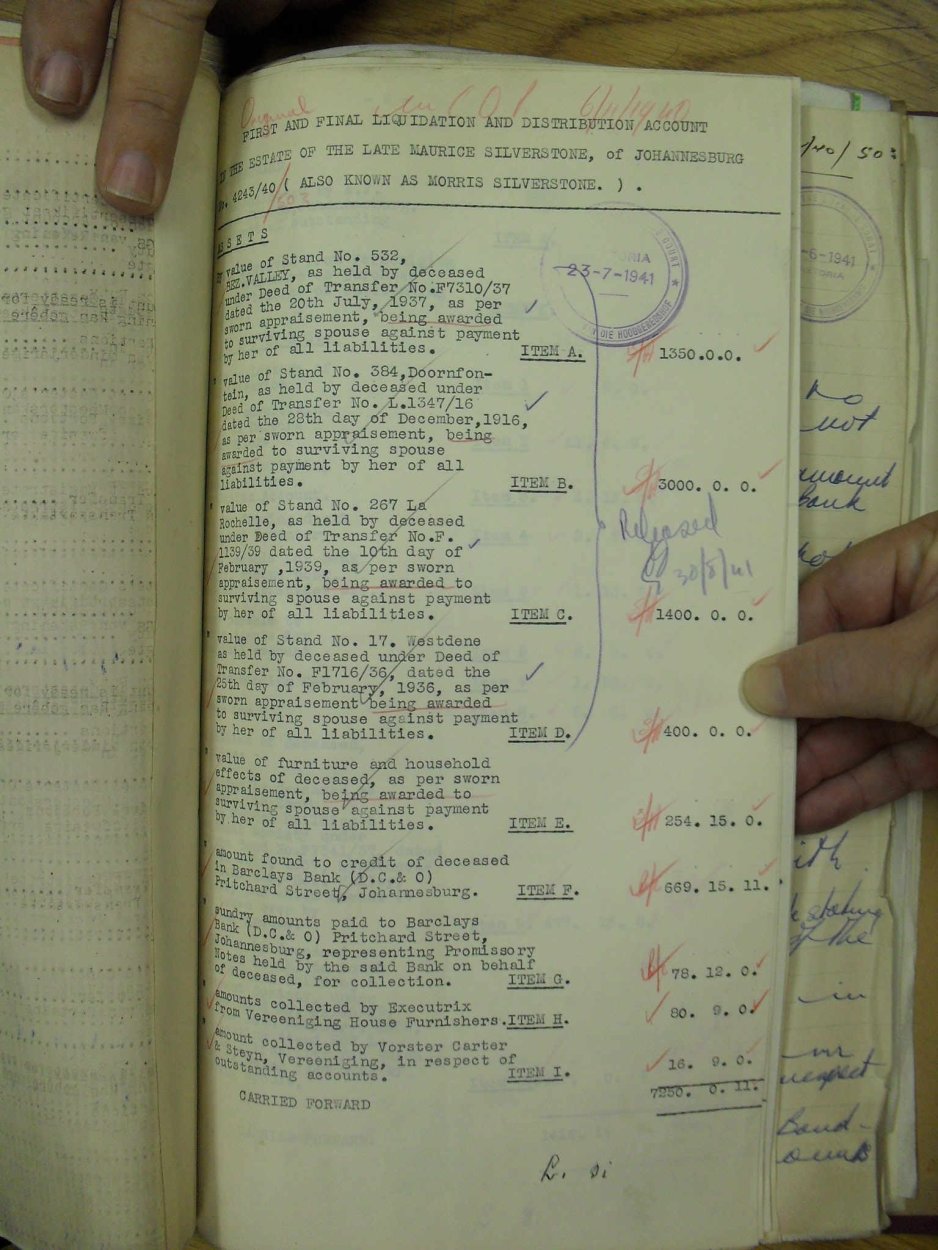 Original 6/11/1940
FIRST AND FINAL LIQUIDATION AND DISTRIBUTION ACCOUNT
IN THE ESTATE OF THE LATE MAURICE SILVERSTONE, of JOHANNESBURG
No. 4243/40 ( ALSO KNOWN AS MORRIS SILVERSTONE. ) .
ASSETS
23-7-1941
By value of Stand No. 532,
BEZ.VALLEY, as held by deceased
under Deed of Transfer No.F7310/37
dated the 20th July, 1937, as per
sworn appraisement, being awarded
to surviving spouse against payment
by her of all liabilities. ITEM A. 1350.0.0.
" value of Stand No. 384,Doornfon-
tein, as held by deceased under
Deed of Transfer No. L.1347/16
dated the 28th day of December,1916,
as per sworn appraisement, being
awarded to surviving spouse
against payment by her of all
liabilities. ITEM B. 3000. 0. 0.
" value of Stand No. 267 La
Rochelle, as held by deceased
under Deed of Transfer No.F.
1139/39 dated the 10th day of
February ,1939, as per sworn
appraisement, being awarded to
surviving spouse against payment
by her of all liabilities. ITEM C. 1400. 0. 0.
Released
30/8/41
" value of Stand No. 17. Westdene
as held by deceased under Deed of
Transfer No. F1716/36, dated the
25th day of February, 1936, as per
sworn appraisement being awarded
to surviving spouse against payment
by her of all liabilities. ITEM D. 400. 0. 0.
" value of furniture and household
effects of deceased, as per sworn
appraisement, being awarded to
surviving spouse against payment
by her of all liabilities. ITEM E. 254. 15. 0.
" amount found to credit of deceased
in Barclays Bank (D.C.& O)
Pritchard Street, Johannesburg. ITEM F. 669. 15. 11.
" sundry amounts paid to Barclays
Bank (D.C.& O) Pritchard Street,
Johannesburg, representing Promissory
Notes held by the said Bank on behalf
of deceased, for collection. ITEM G. 78. 12. 0.
" amounts collected by Executrix
from Vereeniging House Furnishers. ITEM H. 80. 9. 0.
" amount collected by Vorster Carter
& Steyn, Vereeniging, in respect of
outstanding accounts. ITEM I. 16. 9. 0.
7250. 0. 11.
CARRIED FORWARD
-6-1941
no
not
amount
bank
of the
in
respect
Bond